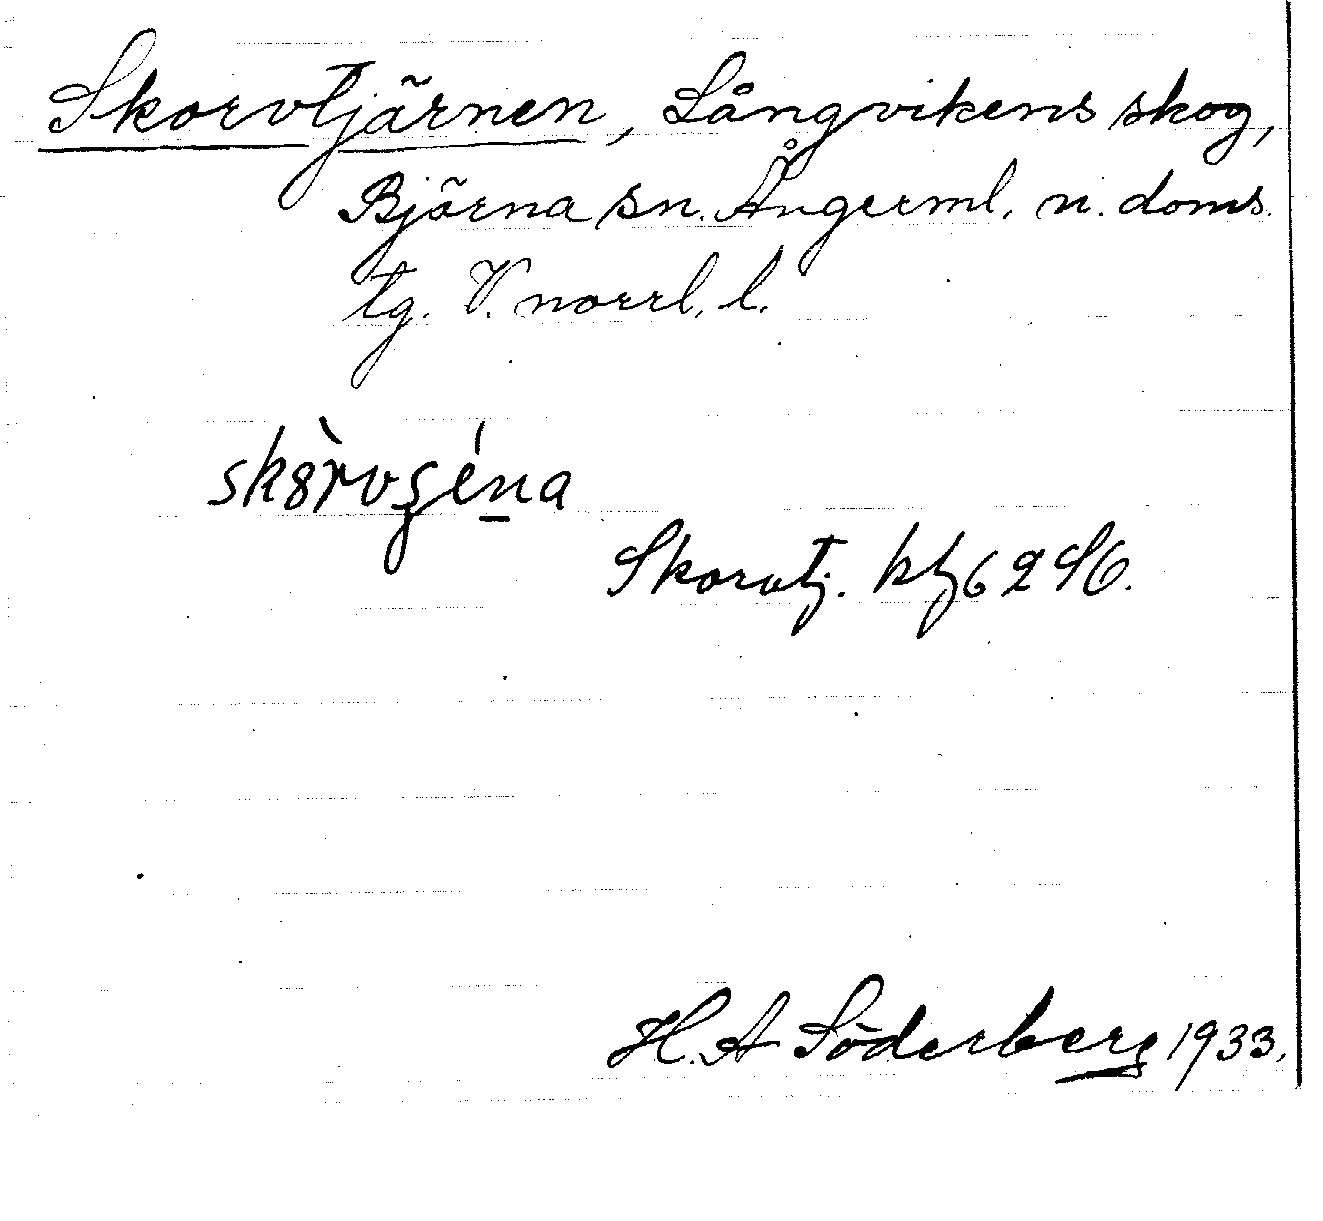 Skorvtjärnen, Långvikens skog,
Björna sn. Ångerml. n. doms.
tg. V. norrl. l.
sk8̀rvʂén̲a
Skorvtj. kbl 62 S6.
H. A Söderberg 1933.